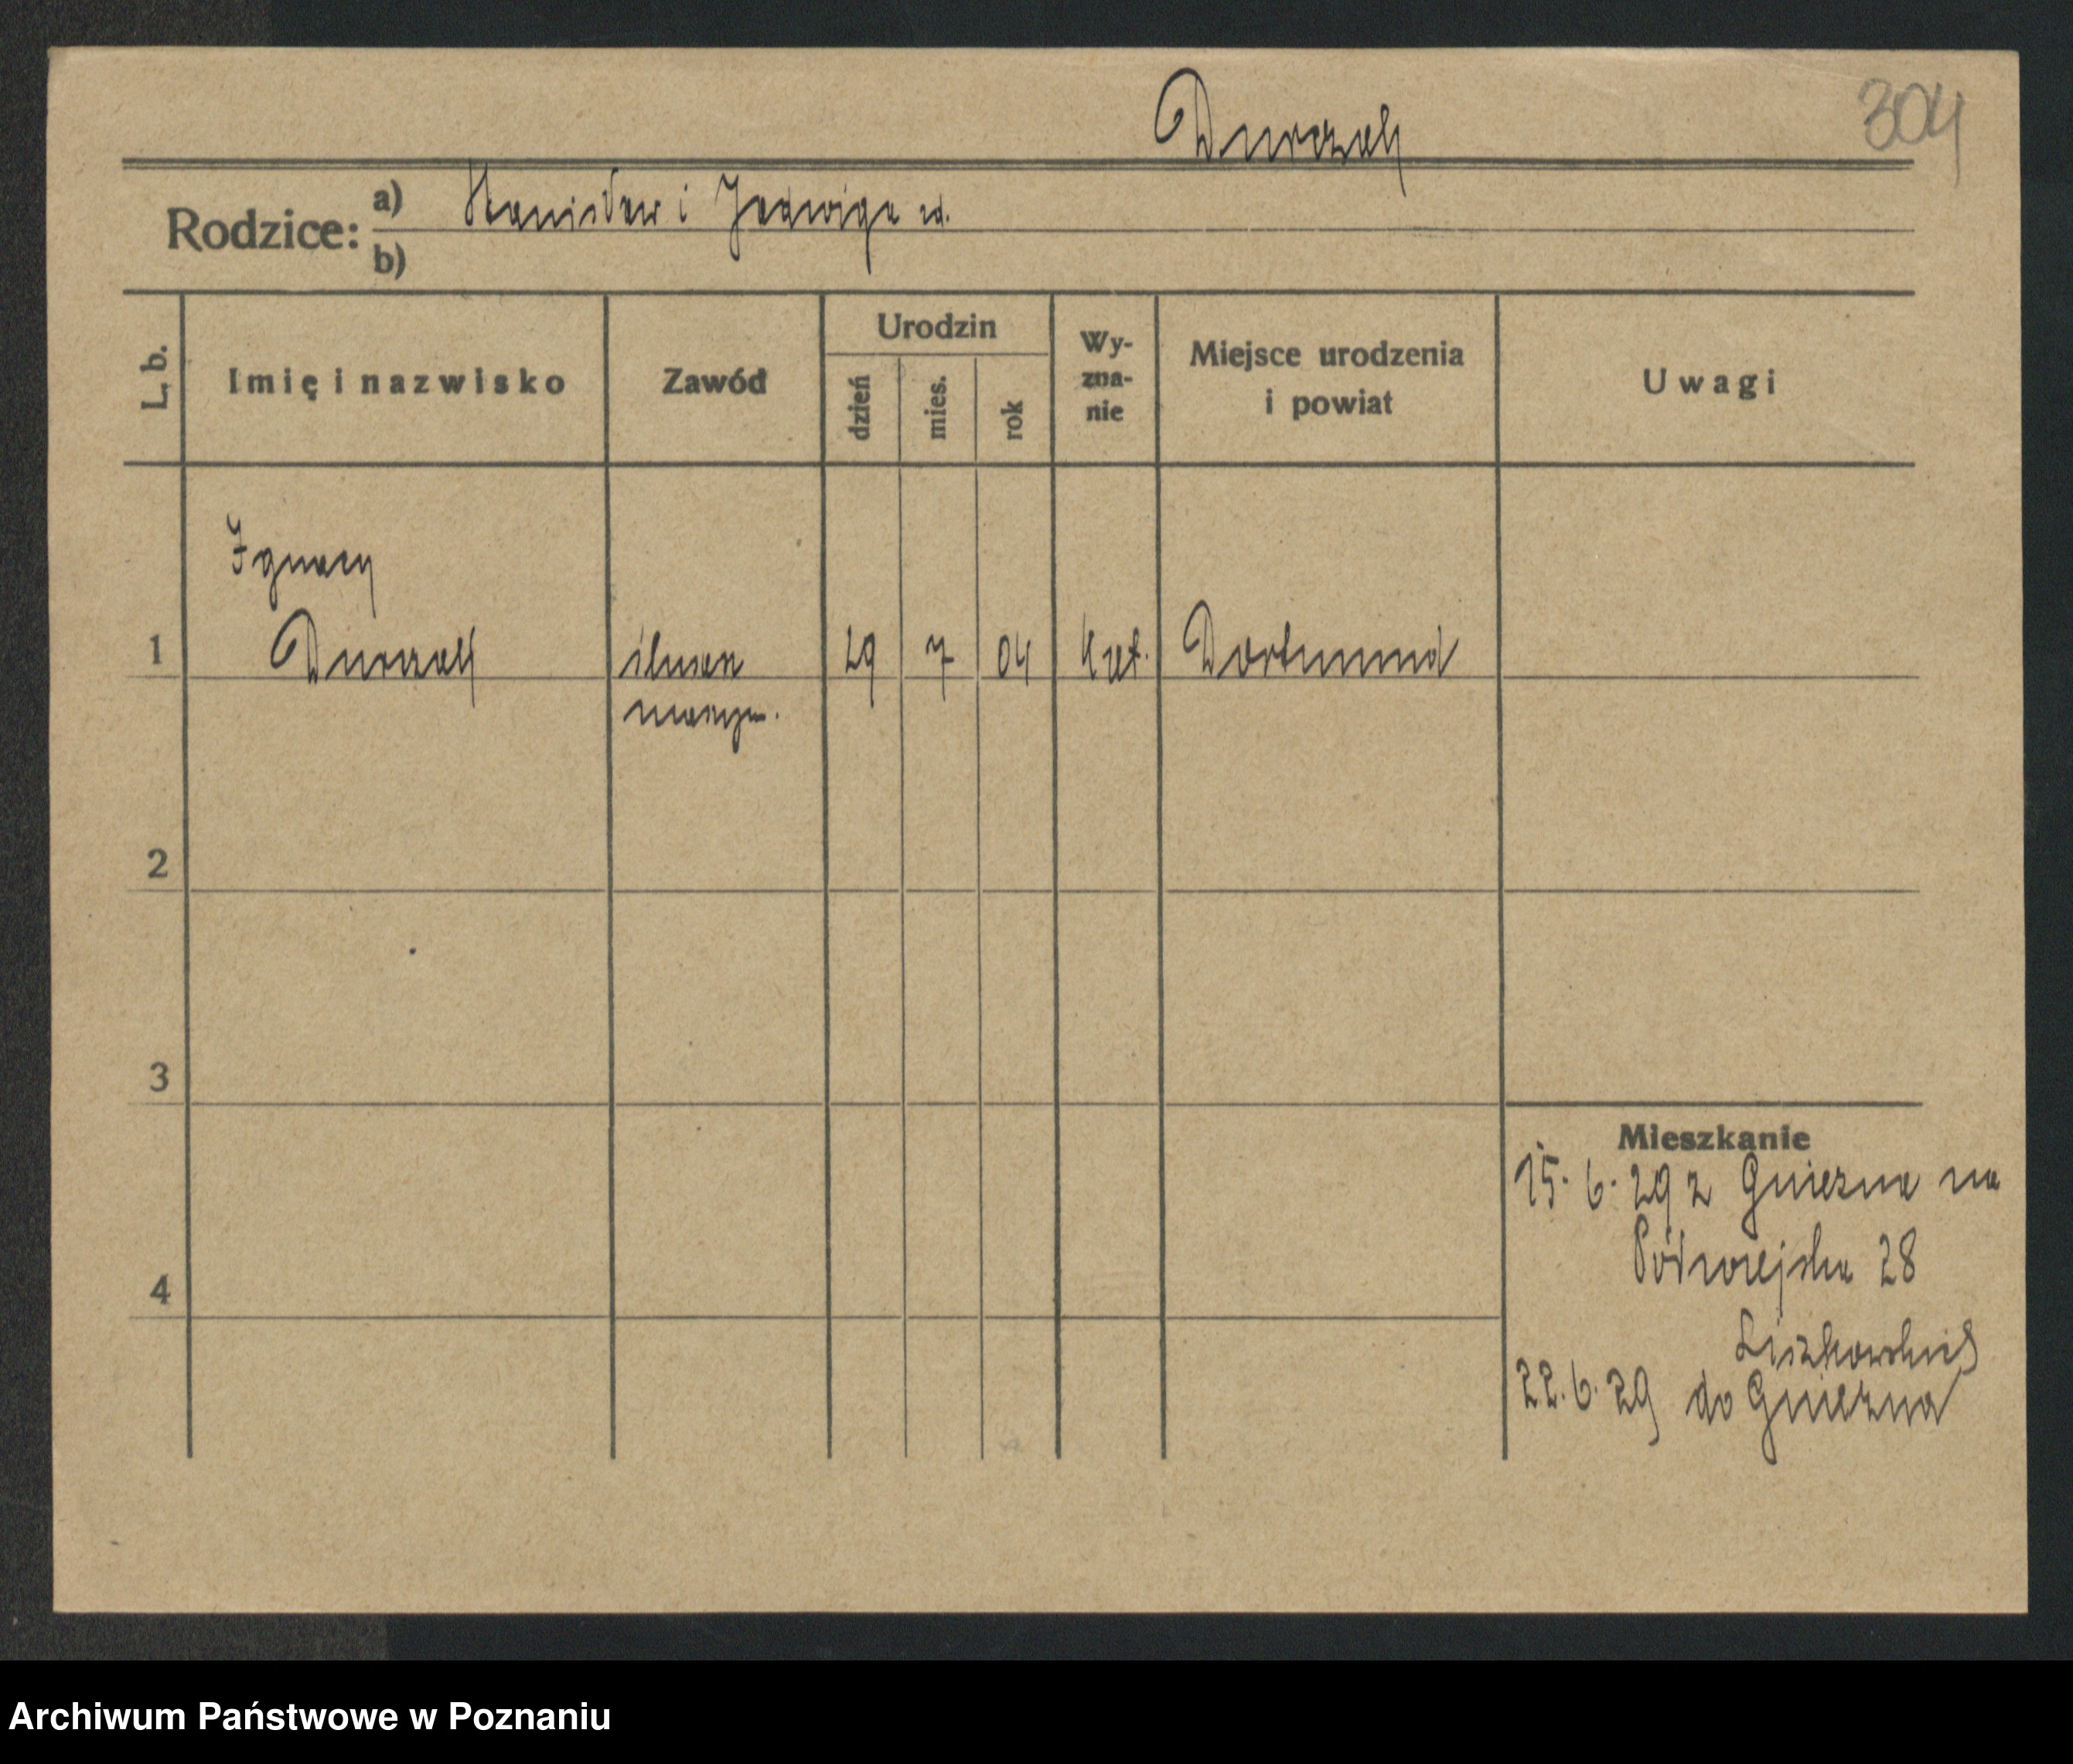 Durczak
304
Rodzice: a) Stanisław i Jadwiga zd.
b)
L. b. Imię i nazwisko Zawód Urodzin dzień mies. rok Wy-zna-nie Miejsce urodzenia i powiat Uwagi
Ignacy
1 Durczak ślusarz 29 7 04 kat. Dortmund
maszyn.
2
3
Mieszkanie
15. 6. 29 z Gniezna na
Półwiejska 28
4
22. 6. 29 do Gniezna
Archiwum Państwowe w Poznaniu